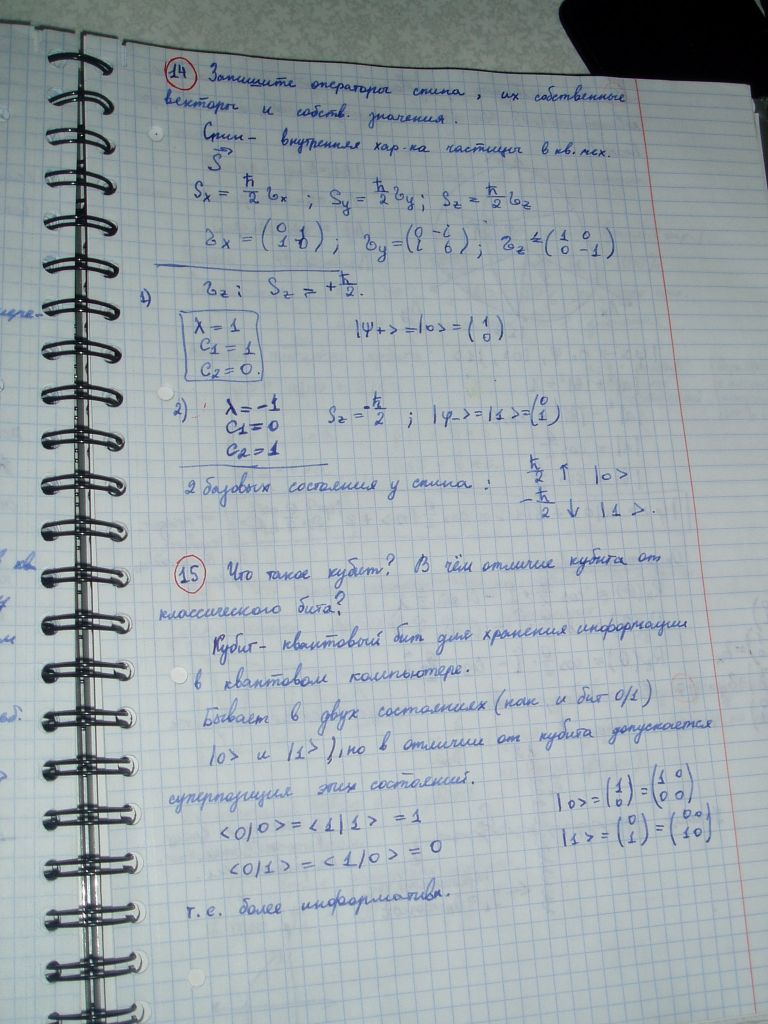 14 Запишите операторы спина, их собственные
векторы и собств. значения.
Спин - внутренняя хар-ка частицы в кв. мех.
S⃗
Sx = ħ/2 τx ; Sy = ħ/2 τy ; Sz = ħ/2 τz
τx = (0 1 1 0) ; τy = (0 -i i 0) ; τz = (1 0 0 -1)
1) τz: Sz = +ħ/2.
λ = 1
C1 = 1 |Ψ+> = |0> = (1 0)
C2 = 0.
2) λ = -1 Sz = -ħ/2 ; |φ-> = |1> = (0 1)
C1 = 0
C2 = 1
2 базовых состояния у спина: ħ/2 ↑ |0>
-ħ/2 ↓ |1>.
15 Что такое кубит? В чём отличие кубита от
классического бита?
Кубит - квантовый бит для хранения информации
в квантовом компьютере.
Бывает в двух состояниях (как и бит 0/1)
|0> и |1>, но в отличии от кубита допускается
суперпозиция этих состояний.
<0|0> = <1|1> = 1 |0> = (1 0) = (1 0 0 0)
<0|1> = <1|0> = 0 |1> = (0 1) = (0 0 1 0)
т.е. более информативн.